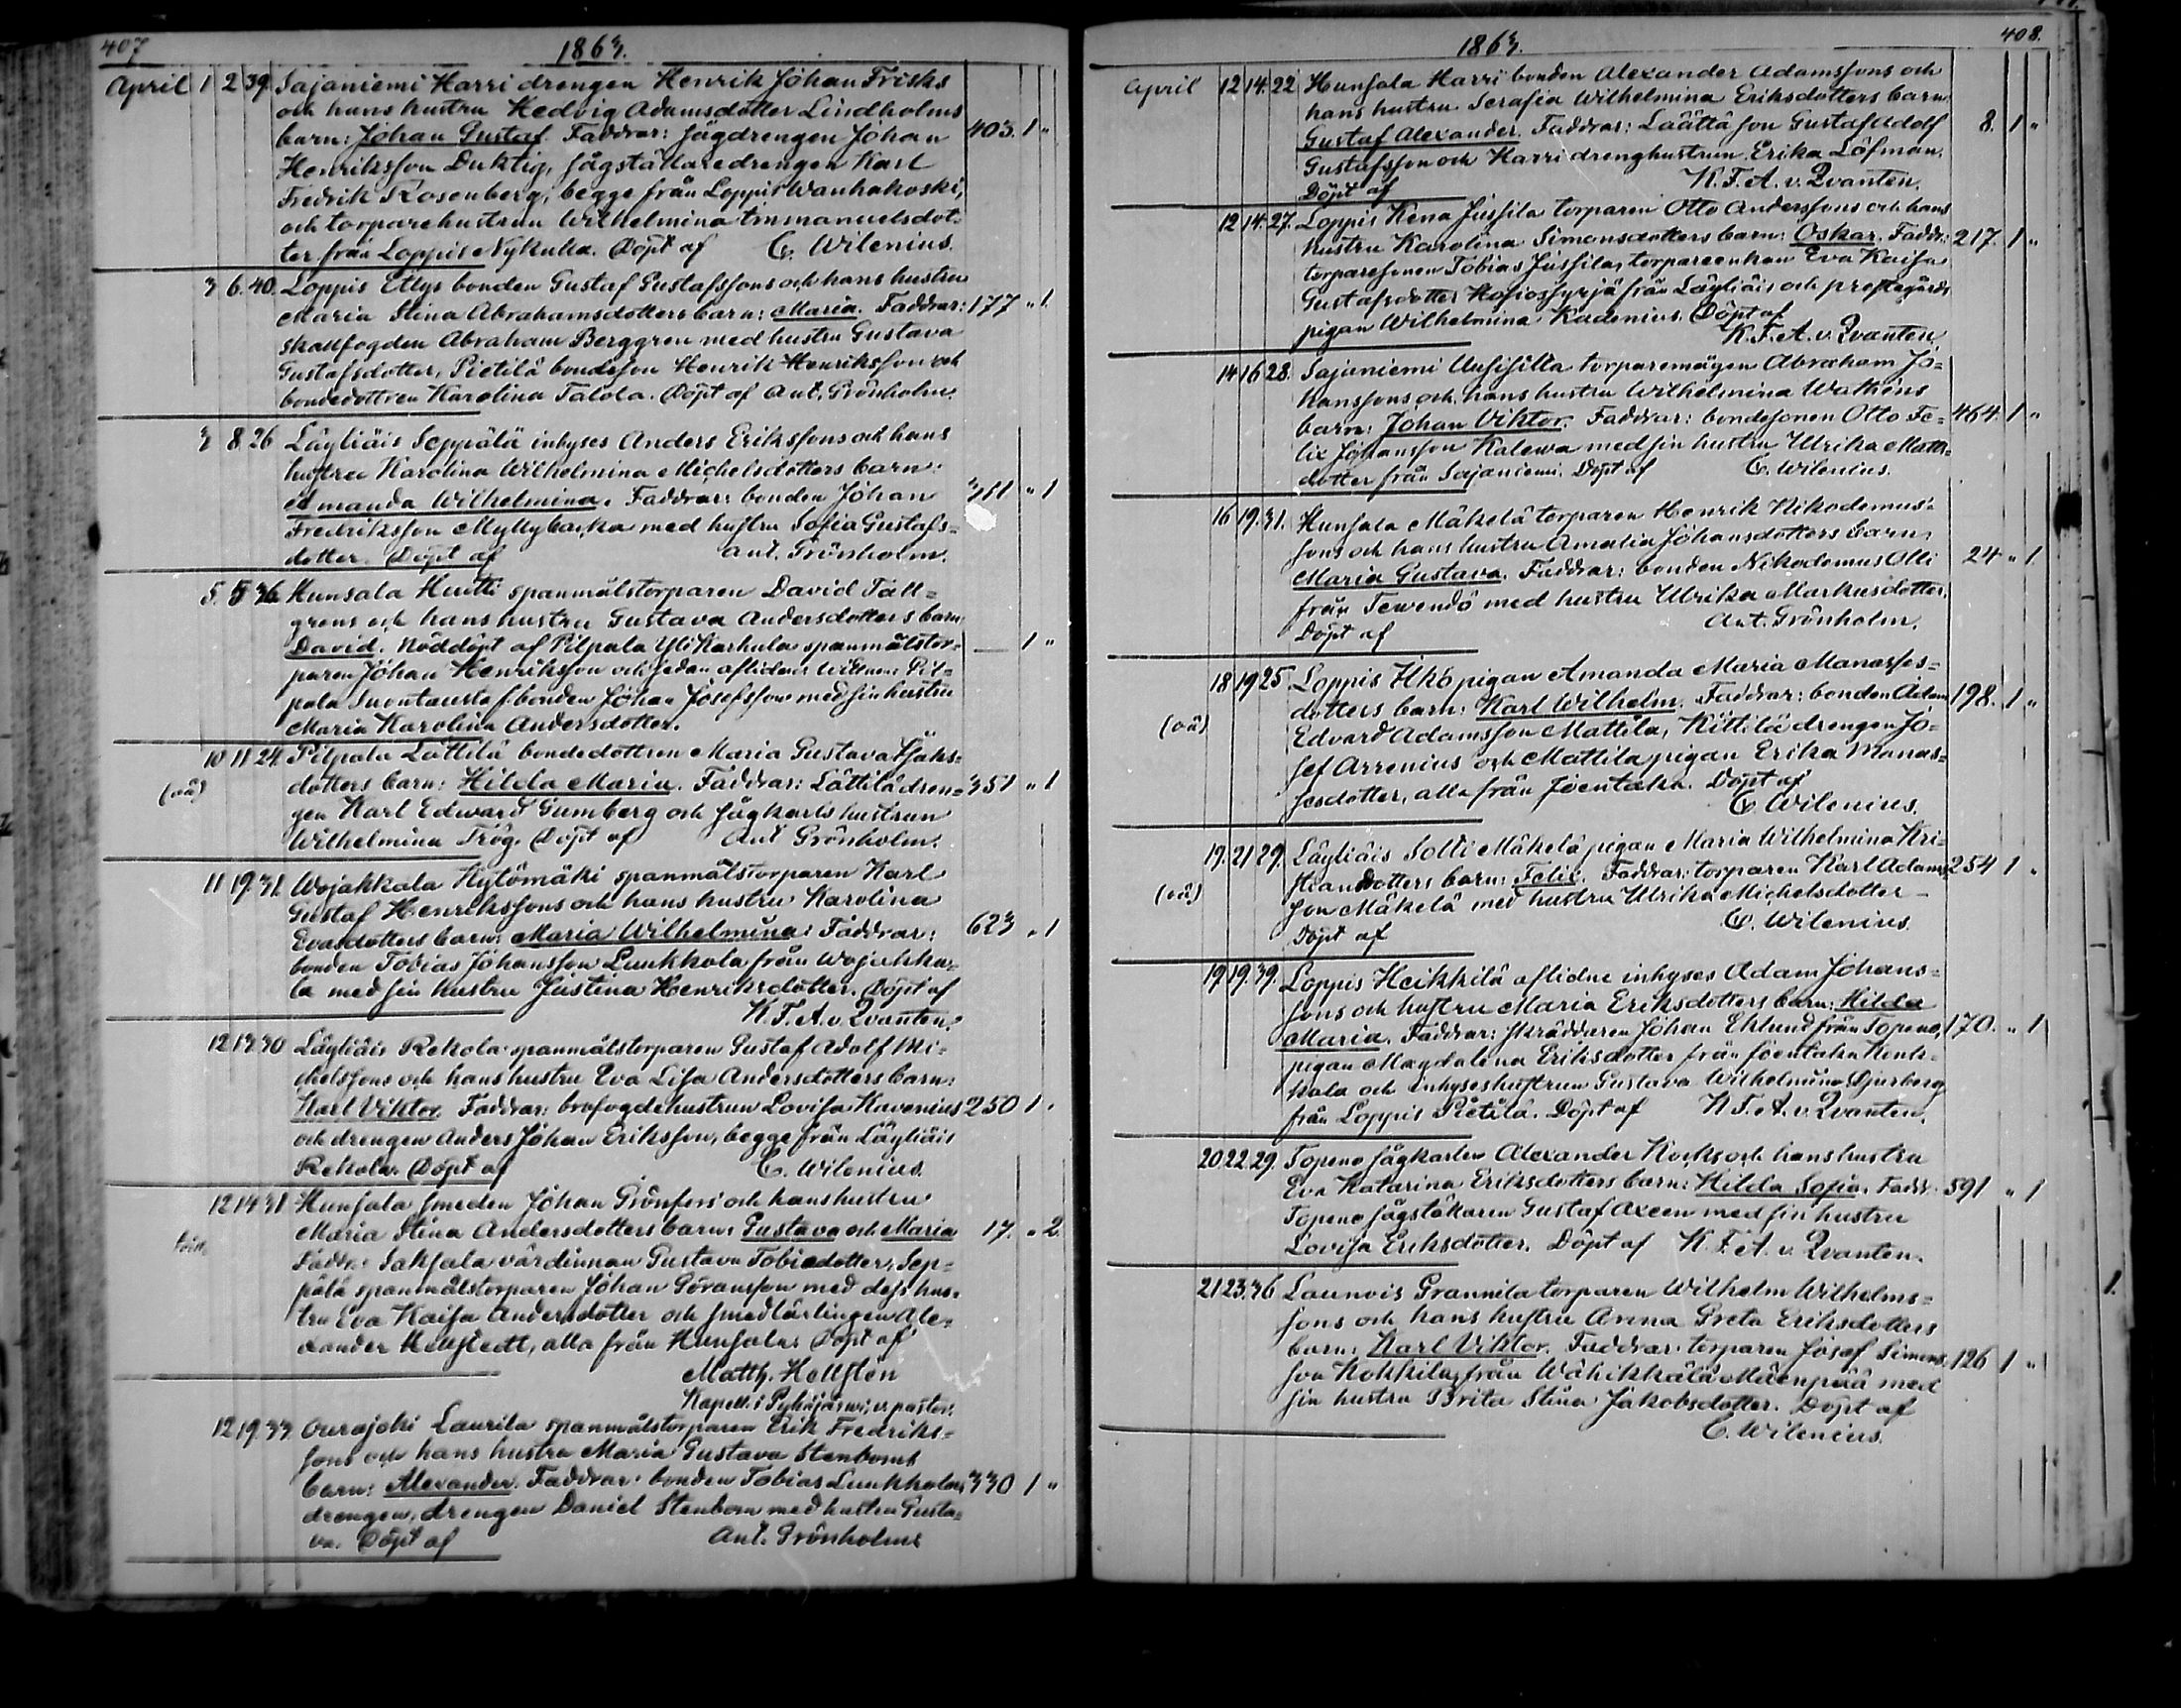 407
1863.
April 1 2 39. Sajaniemi Harri drengen Henrik Johan Frisks
och hans hustru Hedvig Adamsdotter Lindholms
barn: Johan Gustaf. Faddrar: sågdrengen Johan 403. 1 "
Henriksson Duktig, sågställaredrengen Karl
Fredrik Rosenberg, begge från Loppis Wanhakoski,
och torparehustrun Wilhelmina Immanuelsdot-
ter från Loppis Nykulla. Döpt af C. Wilenius.
3 6. 40. Loppis Ellys bonden Gustaf Gustafssons och hans hustru
Maria Stina Abrahamsdotters barn: Maria. Faddrar: 177 " 1.
skallfogden Abraham Berggren med hustru Gustava
Gustafsdotter, Pietilä bondeson Henrik Henriksson och
bondedottren Karolina Talola. Döpt af Ant. Grönholm.
3 8. 26 Läyliäis Seppälä inhyses Anders Erikssons och hans
hustru Karolina Wilhelmina Michelsdotters barn:
Amanda Wilhelmina. Faddrar: bonden Johan 281 " 1
Fredriksson Myllybacka med hustru Sofia Gustafs-
dotter. Döpt af Ant. Grönholm.
5. 5 36 Hunsala Huitti spanmålstorparen David Tall-
grens och hans hustru Gustava Andersdotters barn:
David. Nöddöpt af Pilpala Yli Karhula spanmålstor- — 1 "
paren Johan Henriksson och sedan aflidens vittnen: Pil-
pala Suontausta bonden Johan Josefsson med sin hustru
Maria Karolina Andersdotter.
10 11 24. Pilpala Lättilä bondedottren Maria Gustava Isaks-
(oä) dotters barn: Hilda Maria. Faddrar: Lättilä dren- 351 " 1
gen Karl Edward Gumberg och sågkarls hustrun
Wilhelmina Trög. Döpt af Ant Grönholm.
11 19. 31. Wojakkala Kytömäki spanmålstorparen Karl
Gustaf Henrikssons och hans hustru Karolina
Evasdotters barn: Maria Wilhelmina: Faddrar: 623 " 1
bonden Tobias Johansson Lunkkola från Wojakka-
la med sin hustru Justina Henriksdotter. Döpt af
K. F. A. v. Qvanten.
12 13 30 Läyliäis Rekola spanmålstorparen Gustaf Adolf Mi-
chelssons och hans hustru Eva Lisa Andersdotters barn:
Karl Viktor. Faddrar: brofogdehustrun Lovisa Kavenius 250 1 "
och drengen Anders Johan Eriksson, begge från Läyliäis
Rekola. Döpt af C. Wilenius.
12 14 31 Hunsala smeden Johan Grönfors och hans hustru
Maria Stina Andersdotters barn: Gustava och Maria 17. " 2.
Faddr: Saksala värdinnan Gustava Tobiedotter, Sep-
pälä spanmålstorparen Johan Göransson med dess hus-
tru Eva Kaisa Andersdotter och smedlärlingen Ale-
xander Hellstedt, alla från Hunsala. Döpt af
Matth. Hellstén
Kapell. i Pyhäjärwi, v. pastor.
12 19. 33 Ourajoki Laurila spanmålstorparen Erik Fredriks-
sons och hans hustru Maria Gustava Stenboms
barn: Alexander. Faddrar: bonden Tobias Lunkkola, 330 1 "
drengen, drengen Daniel Stenbom med hustru Gusta-
va. Döpt af Ant. Grönholm
408.
1863.
April 12 14. 22 Hunsala Harri bonden Alexander Adamssons och
hans hustru Serafia Wilhelmina Eriksdotters barn:
Gustaf Alexander. Faddrar: Läättä son Gustaf Adolf 8. 1 "
Gustafsson och Harri drenghustrun Erika Löfman.
Döpt af K. F. A. v. Qvanten.
12 14. 27. Loppis Kena Jussila torparen Otto Anderssons och hans
hustru Karolina Simonsdotters barn: Oskar. Faddr: 217. 1 "
torparesonen Tobias Jussila, torpareenkan Eva Kaisa
Gustafsdotter Hosiosyrjä från Läyliäis och prestegårds
pigan Wilhelmina Kadenius. Döpt af
K. F. A. v. Qvanten
14 16 28. Sajaniemi Uusisilla torparemågen Abraham Jo-
hanssons och hans hustru Wilhelmina Wathéns
barn: Johan Viktor. Faddrar: bondesonen Otto Fe- 464. 1 "
lix Johansson Kalewa med sin hustru Ulrika Matts-
dotter från Sajaniemi. Döpt af C. Wilenius.
16 19. 31. Hunsala Mäkelä torparen Henrik Nikodemus-
sons och hans hustru Amalia Johansdotters barn:
Maria Gustava. Faddrar: bonden Nikodemus Olli 24 " 1.
från Tewendö med hustru Ulrika Markusdotter.
Döpt af Ant. Grönholm.
18 19 25. Loppis Ilko pigan Amanda Maria Manasses-
(oä) dotters barn: Karl Wilhelm. Faddrar: bonden Adam 198. 1 "
Edvard Adamsson Mattila, Kittilä drengen Jo-
sef Arrenius och Mattila pigan Erika Manas-
sesdotter, alla från Joentaka. Döpt af
C. Wilenius.
19. 21 29. Läyliäis Solli Mäkelä pigan Maria Wilhelmina Kri-
(oä) stiansdotters barn: Felix. Faddrar: torparen Karl Adams- 254 1 "
son Mäkelä med hustru Ulrika Michelsdotter
Döpt af C. Wilenius.
19 19. 39. Loppis Heikkilä aflidne inhyses Adam Johans-
sons och hustru Maria Eriksdotters barn: Hilda
Maria. Faddrar: skräddaren Johan Eklund från Topeno, 170. " 1
pigan Magdalena Eriksdotter från Joentaka Kenk-
kala och inhyseshustrun Gustava Wilhelmina Djurberg
från Loppis Pietilä. Döpt af K. F. A. v. Qvanten.
20 22. 29. Topeno sågkarlen Alexander Kocks och hans hustru
Eva Katarina Eriksdotters barn: Hilda Sofia. Faddr. 591 " 1
Topeno sågställaren Gustaf Axeen med sin hustru
Lovisa Eriksdotter. Döpt af K. F. A. v. Qvanten.
21 23. 36 Launois Prannila torparen Wilhelm Wilhelms-
sons och hans hustru Anna Greta Eriksdotters
barn: Karl Viktor. Faddrar: torparen Josef Simons- 126 1 "
son Kokkila från Wähikkälä Mäenpää med
sin hustru Brita Stina Jakobsdotter. Döpt af
C. Wilenius.
1.